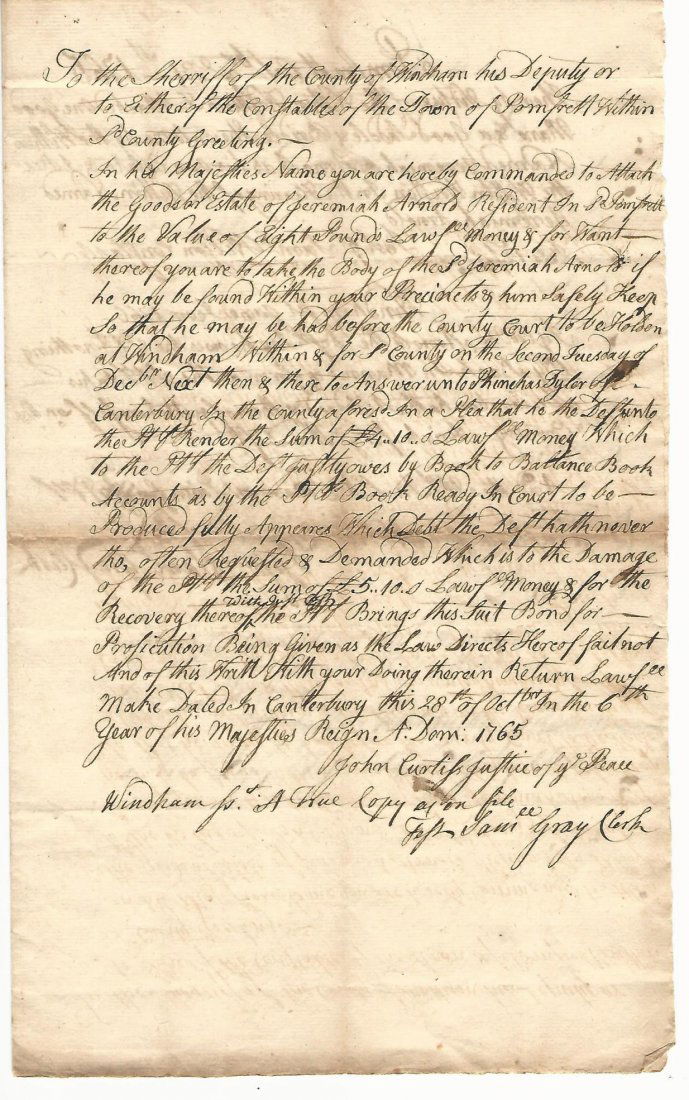 To the Sherriff of the County of Windham his Deputy or
to Either of the Constables of the Town of Pomfrett Within
Sd County Greeting. —
In his Majesties Name you are hereby Commanded to Attach
the Goods or Estate of Jeremiah Arnold Resident In Sd Pomfrett
to the Value of Eight Pounds Lawfll Money & for Want —
thereof you are to take the Body of the Sd Jeremiah Arnold if
he may be found Within your Precincts & him Safely Keep
So that he may be had before the County Court to be Holden
at Windham Within & for Sd County on the Second Tuesday of
Decbr Next then & there to Answer unto Phinehas Tylor of
Canterbury In the County aforesd In a Plea that he the Deft unto
the Ptff Render the Sum of £4..10..0 Lawfll Money Which
to the Ptff the Deft justly owes by Book to Ballance Book
Accounts as by the Ptffs Book Ready In Court to be —
Produced fully Appeares Which Debt the Deft hath never
tho, often Requested & Demanded Which is to the Damage
of the Ptff the Sum of £5..10..0 Lawfll Money & for the
Recovery thereof With Just Cost the Ptff Brings this Suit Bond for —
Prosicution Being Given as the Law Directs Hereof fail not
And of this Writt With your Doing therein Return Lawfll
Make Dated In Canterbury this 28th of Octbr In the 6th
Year of his Majesties Reign A: Dom: 1765
John Curtiss Justice of ye Peace
Windham ss. A True Copy as on file
Test Samll Gray Clerk